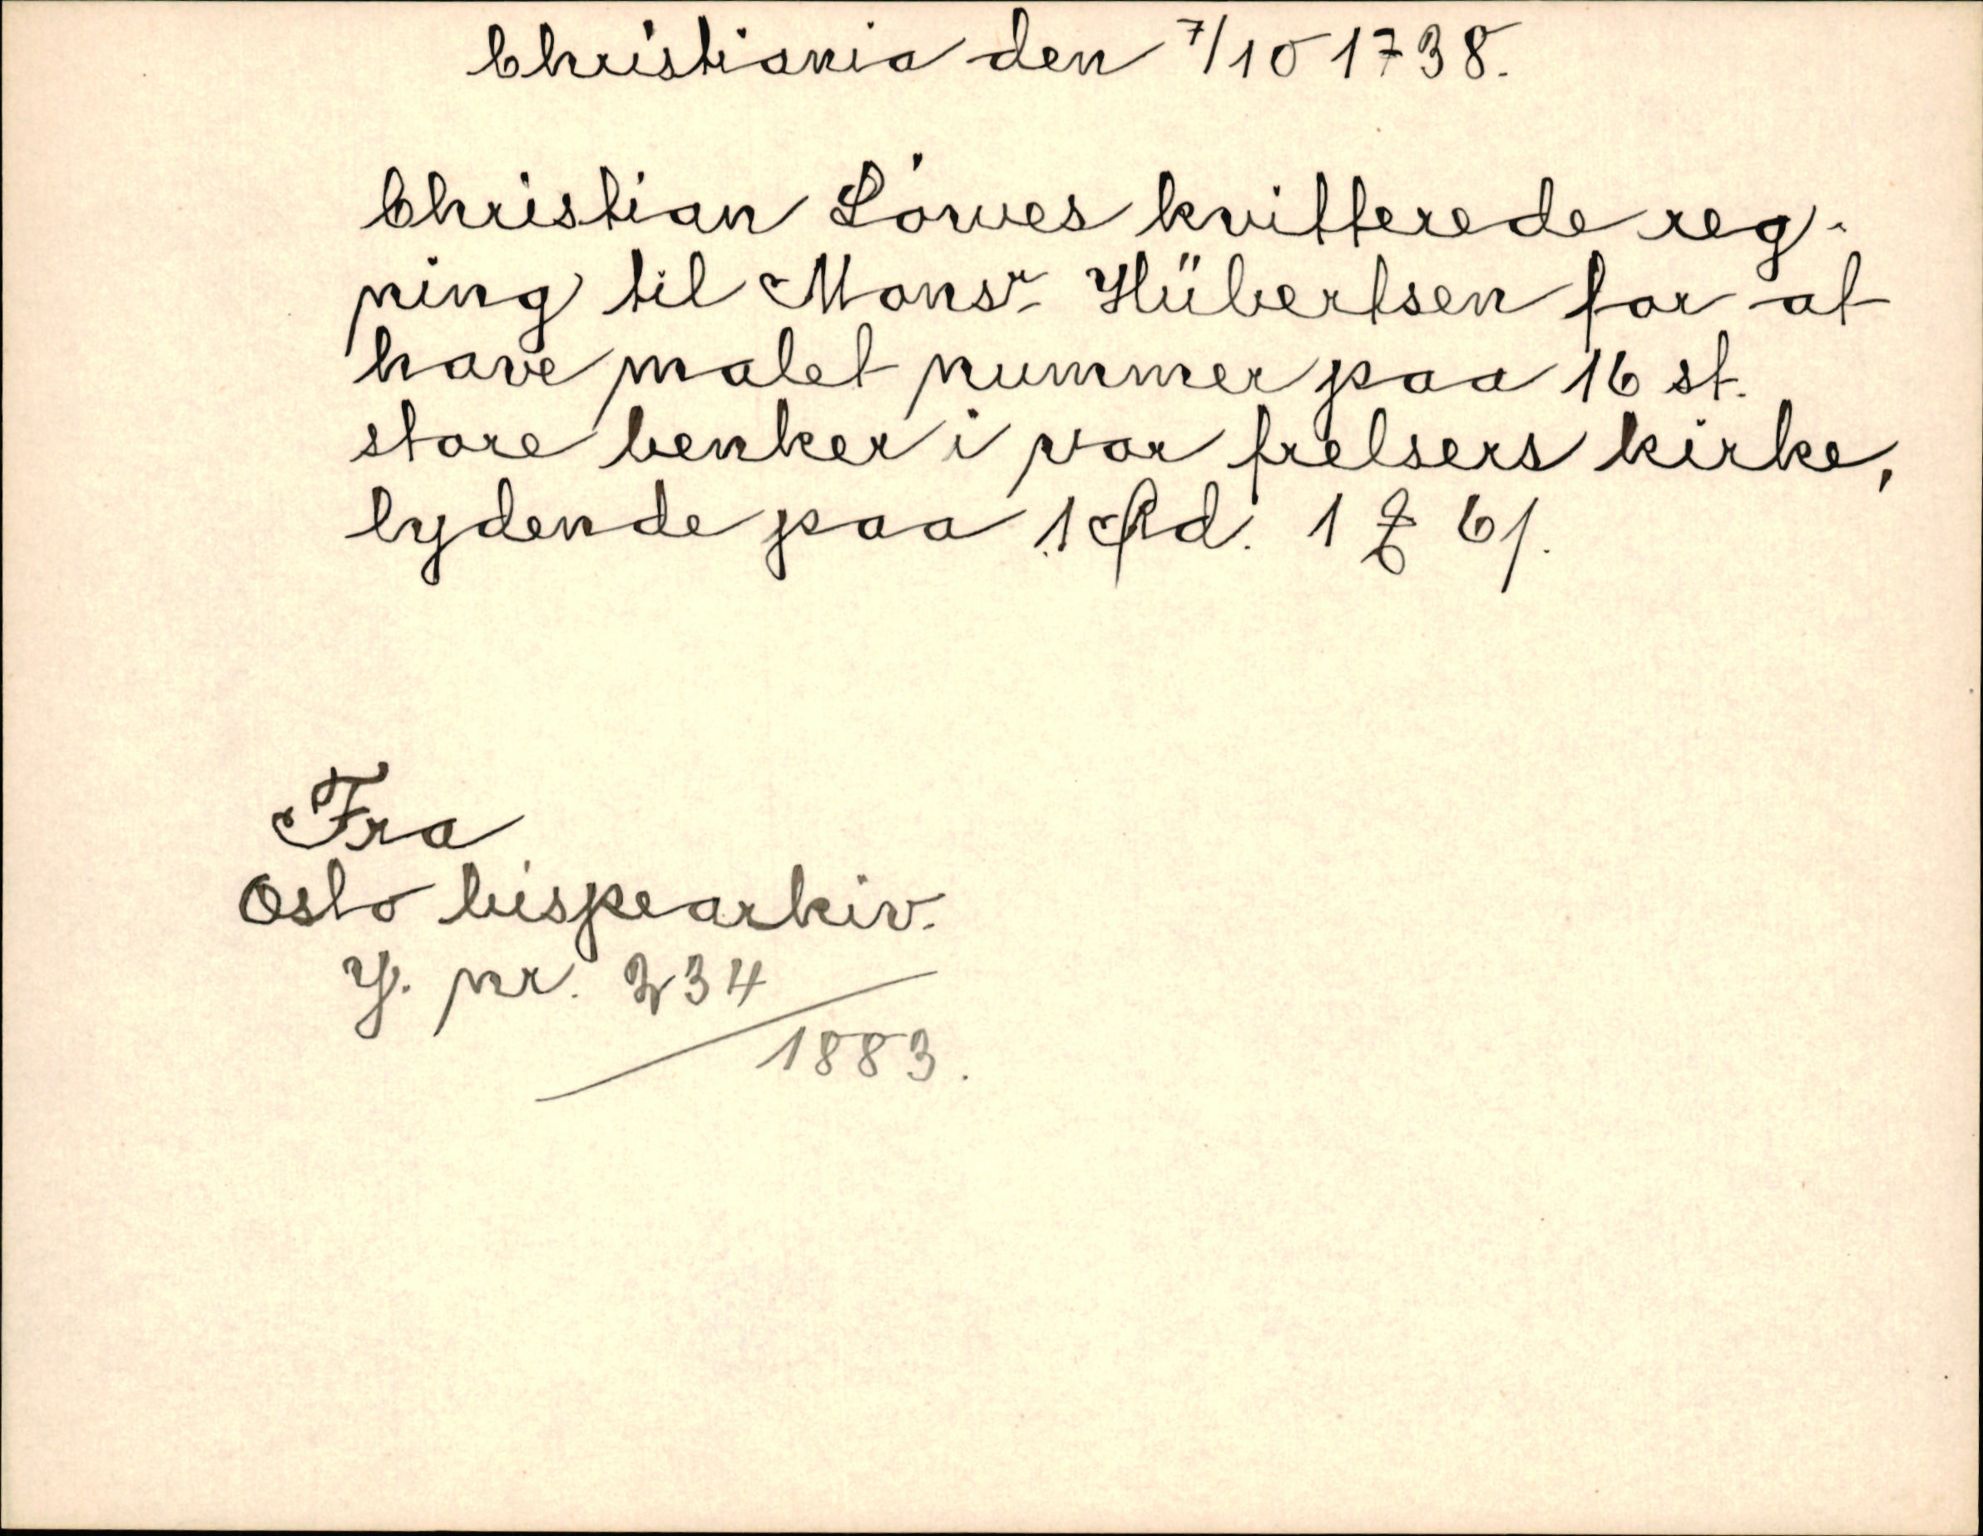 Christiania den 7/10 1738.
Christian Löwes kvitterede reg-
ning til Monsr Hübertsen for at
have malet nummer paa 16 st.
store benker i vor frelsers kirke,
lydende paa 1 Rd. 1 ℔ 6 ſ.
Fra
Oslo bispearkiv.
J. nr. 234
1883.